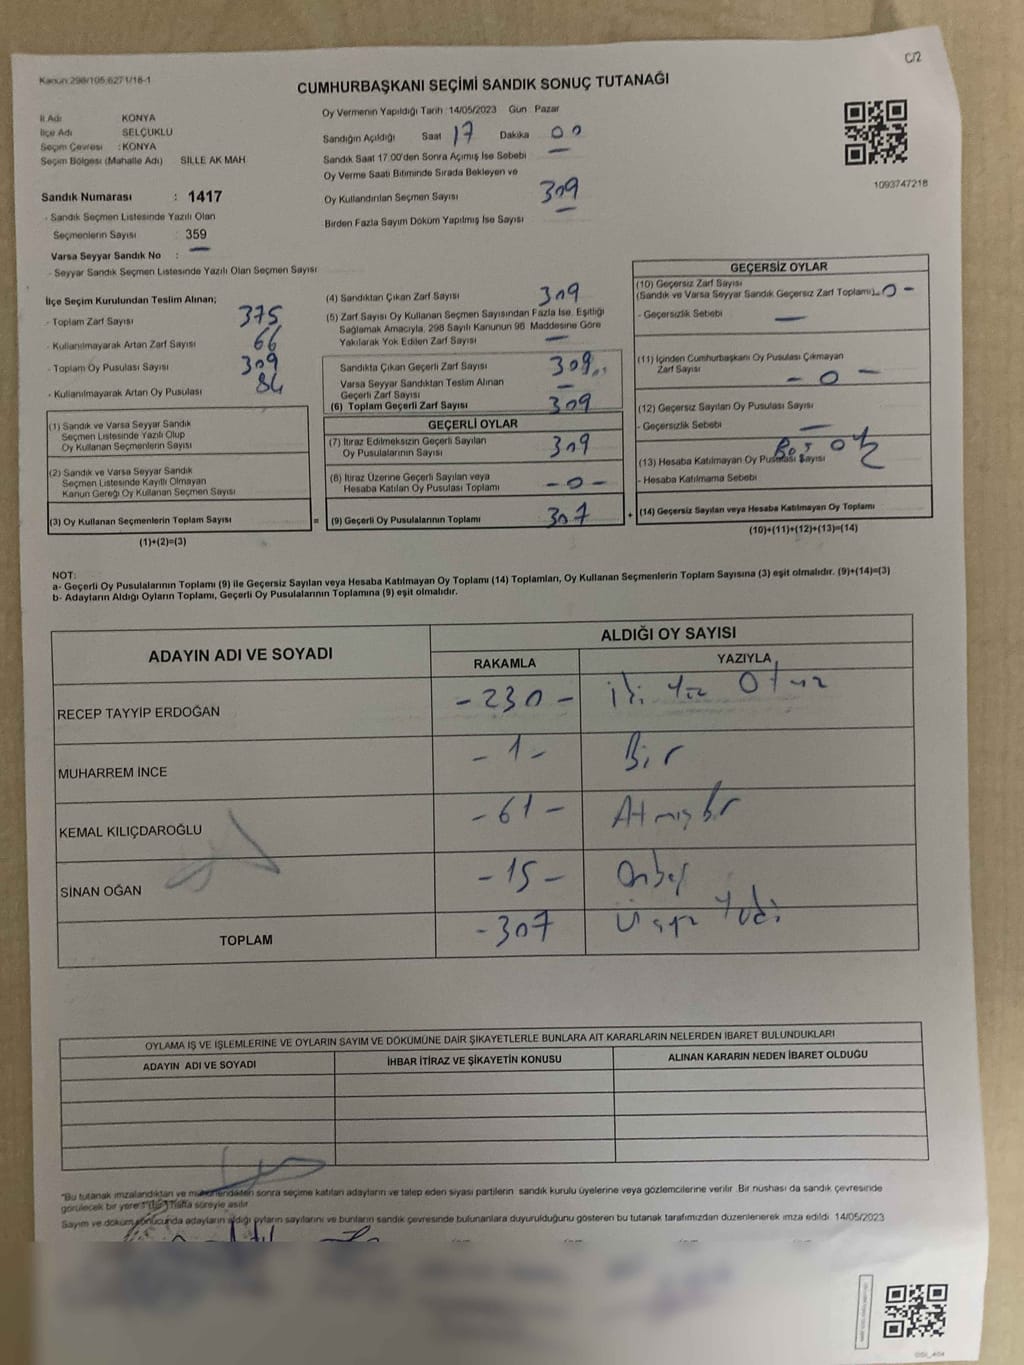 C/2
Kanun:298/105,6271/18-1
CUMHURBAŞKANI SEÇİMİ SANDIK SONUÇ TUTANAĞI
İl Adı KONYA
İlçe Adı SELÇUKLU
Seçim Çevresi : KONYA
Seçim Bölgesi (Mahalle Adı) SİLLE AK MAH
Sandık Numarası : 1417
- Sandık Seçmen Listesinde Yazılı Olan
Seçmenlerin Sayısı : 359
Varsa Seyyar Sandık No : —
- Seyyar Sandık Seçmen Listesinde Yazılı Olan Seçmen Sayısı
Oy Vermenin Yapıldığı Tarih :14/05/2023 Gün : Pazar
Sandığın Açıldığı Saat 17 Dakika 00
Sandık Saat 17:00'den Sonra Açımış İse Sebebi —
Oy Verme Saati Bitiminde Sırada Bekleyen ve
Oy Kullandırılan Seçmen Sayısı 309
Birden Fazla Sayım Döküm Yapılmış İse Sayısı —
1093747218
İlçe Seçim Kurulundan Teslim Alınan;
- Toplam Zarf Sayısı 375
- Kullanılmayarak Artan Zarf Sayısı 66
- Toplam Oy Pusulası Sayısı 309
- Kullanılmayarak Artan Oy Pusulası
(1) Sandık ve Varsa Seyyar Sandık
Seçmen Listesinde Yazılı Olup
Oy Kullanan Seçmenlerin Sayısı
(2) Sandık ve Varsa Seyyar Sandık
Seçmen Listesinde Kayıtlı Olmayan
Kanun Gereği Oy Kullanan Seçmen Sayısı
(3) Oy Kullanan Seçmenlerin Toplam Sayısı =
(1)+(2)=(3)
(4) Sandıktan Çıkan Zarf Sayısı 309
(5) Zarf Sayısı Oy Kullanan Seçmen Sayısından Fazla İse, Eşitliği
Sağlamak Amacıyla, 298 Sayılı Kanunun 98. Maddesine Göre
Yakılarak Yok Edilen Zarf Sayısı —
Sandıkta Çıkan Geçerli Zarf Sayısı 309
Varsa Seyyar Sandıktan Teslim Alınan
Geçerli Zarf Sayısı —
(6) Toplam Geçerli Zarf Sayısı 309
GEÇERLİ OYLAR
(7) İtiraz Edilmeksizin Geçerli Sayılan
Oy Pusulalarının Sayısı 309
(8) İtiraz Üzerine Geçerli Sayılan veya
Hesaba Katılan Oy Pusulası Toplamı -0-
(9) Geçerli Oy Pusulalarının Toplamı 307 +
GEÇERSİZ OYLAR
(10) Geçersiz Zarf Sayısı
(Sandık ve Varsa Seyyar Sandık Geçersiz Zarf Toplamı) -0-
- Geçersizlik Sebebi —
(11) İçinden Cumhurbaşkanı Oy Pusulası Çıkmayan
Zarf Sayısı -0-
(12) Geçersiz Sayılan Oy Pusulası Sayısı
- Geçersizlik Sebebi —
Boş oy 2
(13) Hesaba Katılmayan Oy Pusulası Sayısı
- Hesaba Katılmama Sebebi
(14) Geçersiz Sayılan veya Hesaba Katılmayan Oy Toplamı
(10)+(11)+(12)+(13)=(14)
NOT:
a- Geçerli Oy Pusulalarının Toplamı (9) ile Geçersiz Sayılan veya Hesaba Katılmayan Oy Toplamı (14) Toplamları, Oy Kullanan Seçmenlerin Toplam Sayısına (3) eşit olmalıdır. (9)+(14)=(3)
b- Adayların Aldığı Oyların Toplamı, Geçerli Oy Pusulalarının Toplamına (9) eşit olmalıdır.
ADAYIN ADI VE SOYADI ALDIĞI OY SAYISI
RAKAMLA YAZIYLA
RECEP TAYYİP ERDOĞAN -230- iki yüz Otuz
MUHARREM İNCE -1- Bir
KEMAL KILIÇDAROĞLU -61- Atmışbir
SİNAN OĞAN -15- Onbeş
TOPLAM -307 Üçyüz Yedi
OYLAMA İŞ VE İŞLEMLERİNE VE OYLARIN SAYIM VE DÖKÜMÜNE DAİR ŞİKAYETLERLE BUNLARA AİT KARARLARIN NELERDEN İBARET BULUNDUKLARI
ADAYIN ADI VE SOYADI İHBAR İTİRAZ VE ŞİKAYETİN KONUSU ALINAN KARARIN NEDEN İBARET OLDUĞU
"Bu tutanak imzalandıktan ve mühürlendikten sonra seçime katılan adayların ve talep eden siyasi partilerin sandık kurulu üyelerine veya gözlemcilerine verilir .Bir nushası da sandık çevresinde
görülecek bir yere 1 (bir) hafta süreyle asılır.
Sayım ve döküm sonucunda adayların aldığı oyların sayılarını ve bunların sandık çevresinde bulunanlara duyurulduğunu gösteren bu tutanak tarafımızdan düzenlenerek imza edildi. 14/05/2023